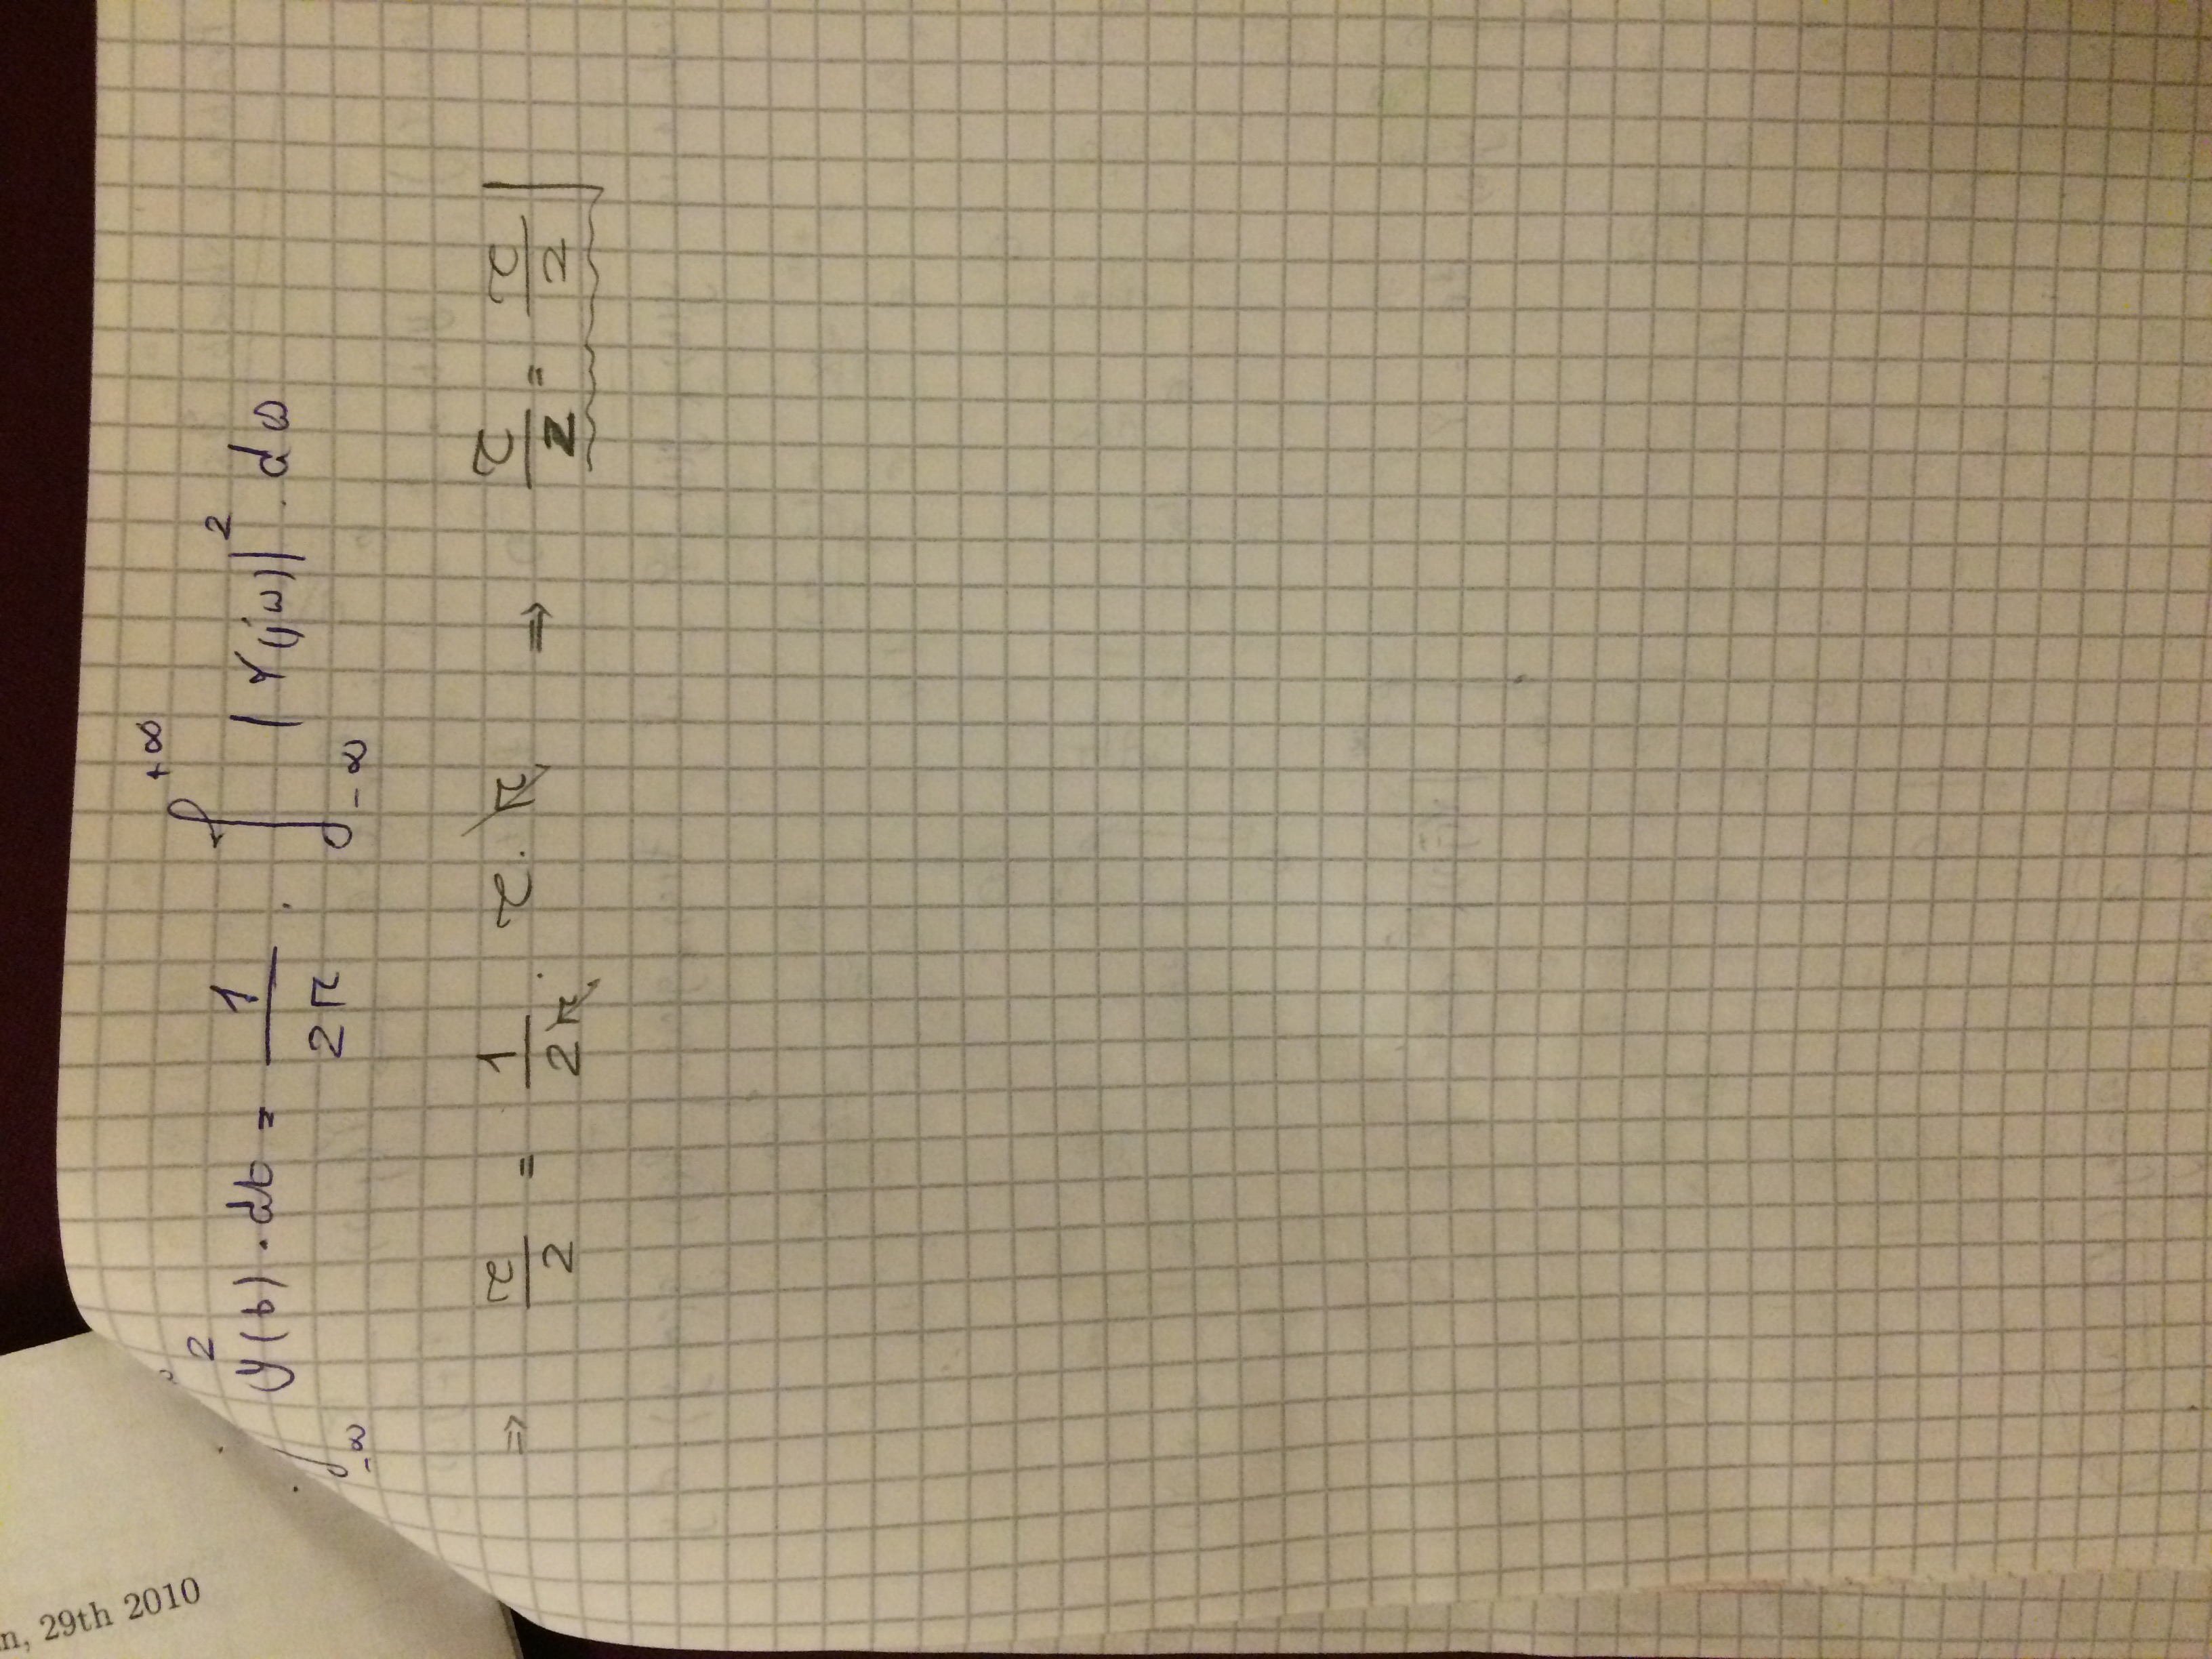 n, 29th 2010
∫_{-∞} y²(t) · dt = 1/2π · ∫_{-∞}^{+∞} |Y(jω)|² · dω
⇒ τ/2 = 1/2π · τ · π ⇒ τ/2 = τ/2